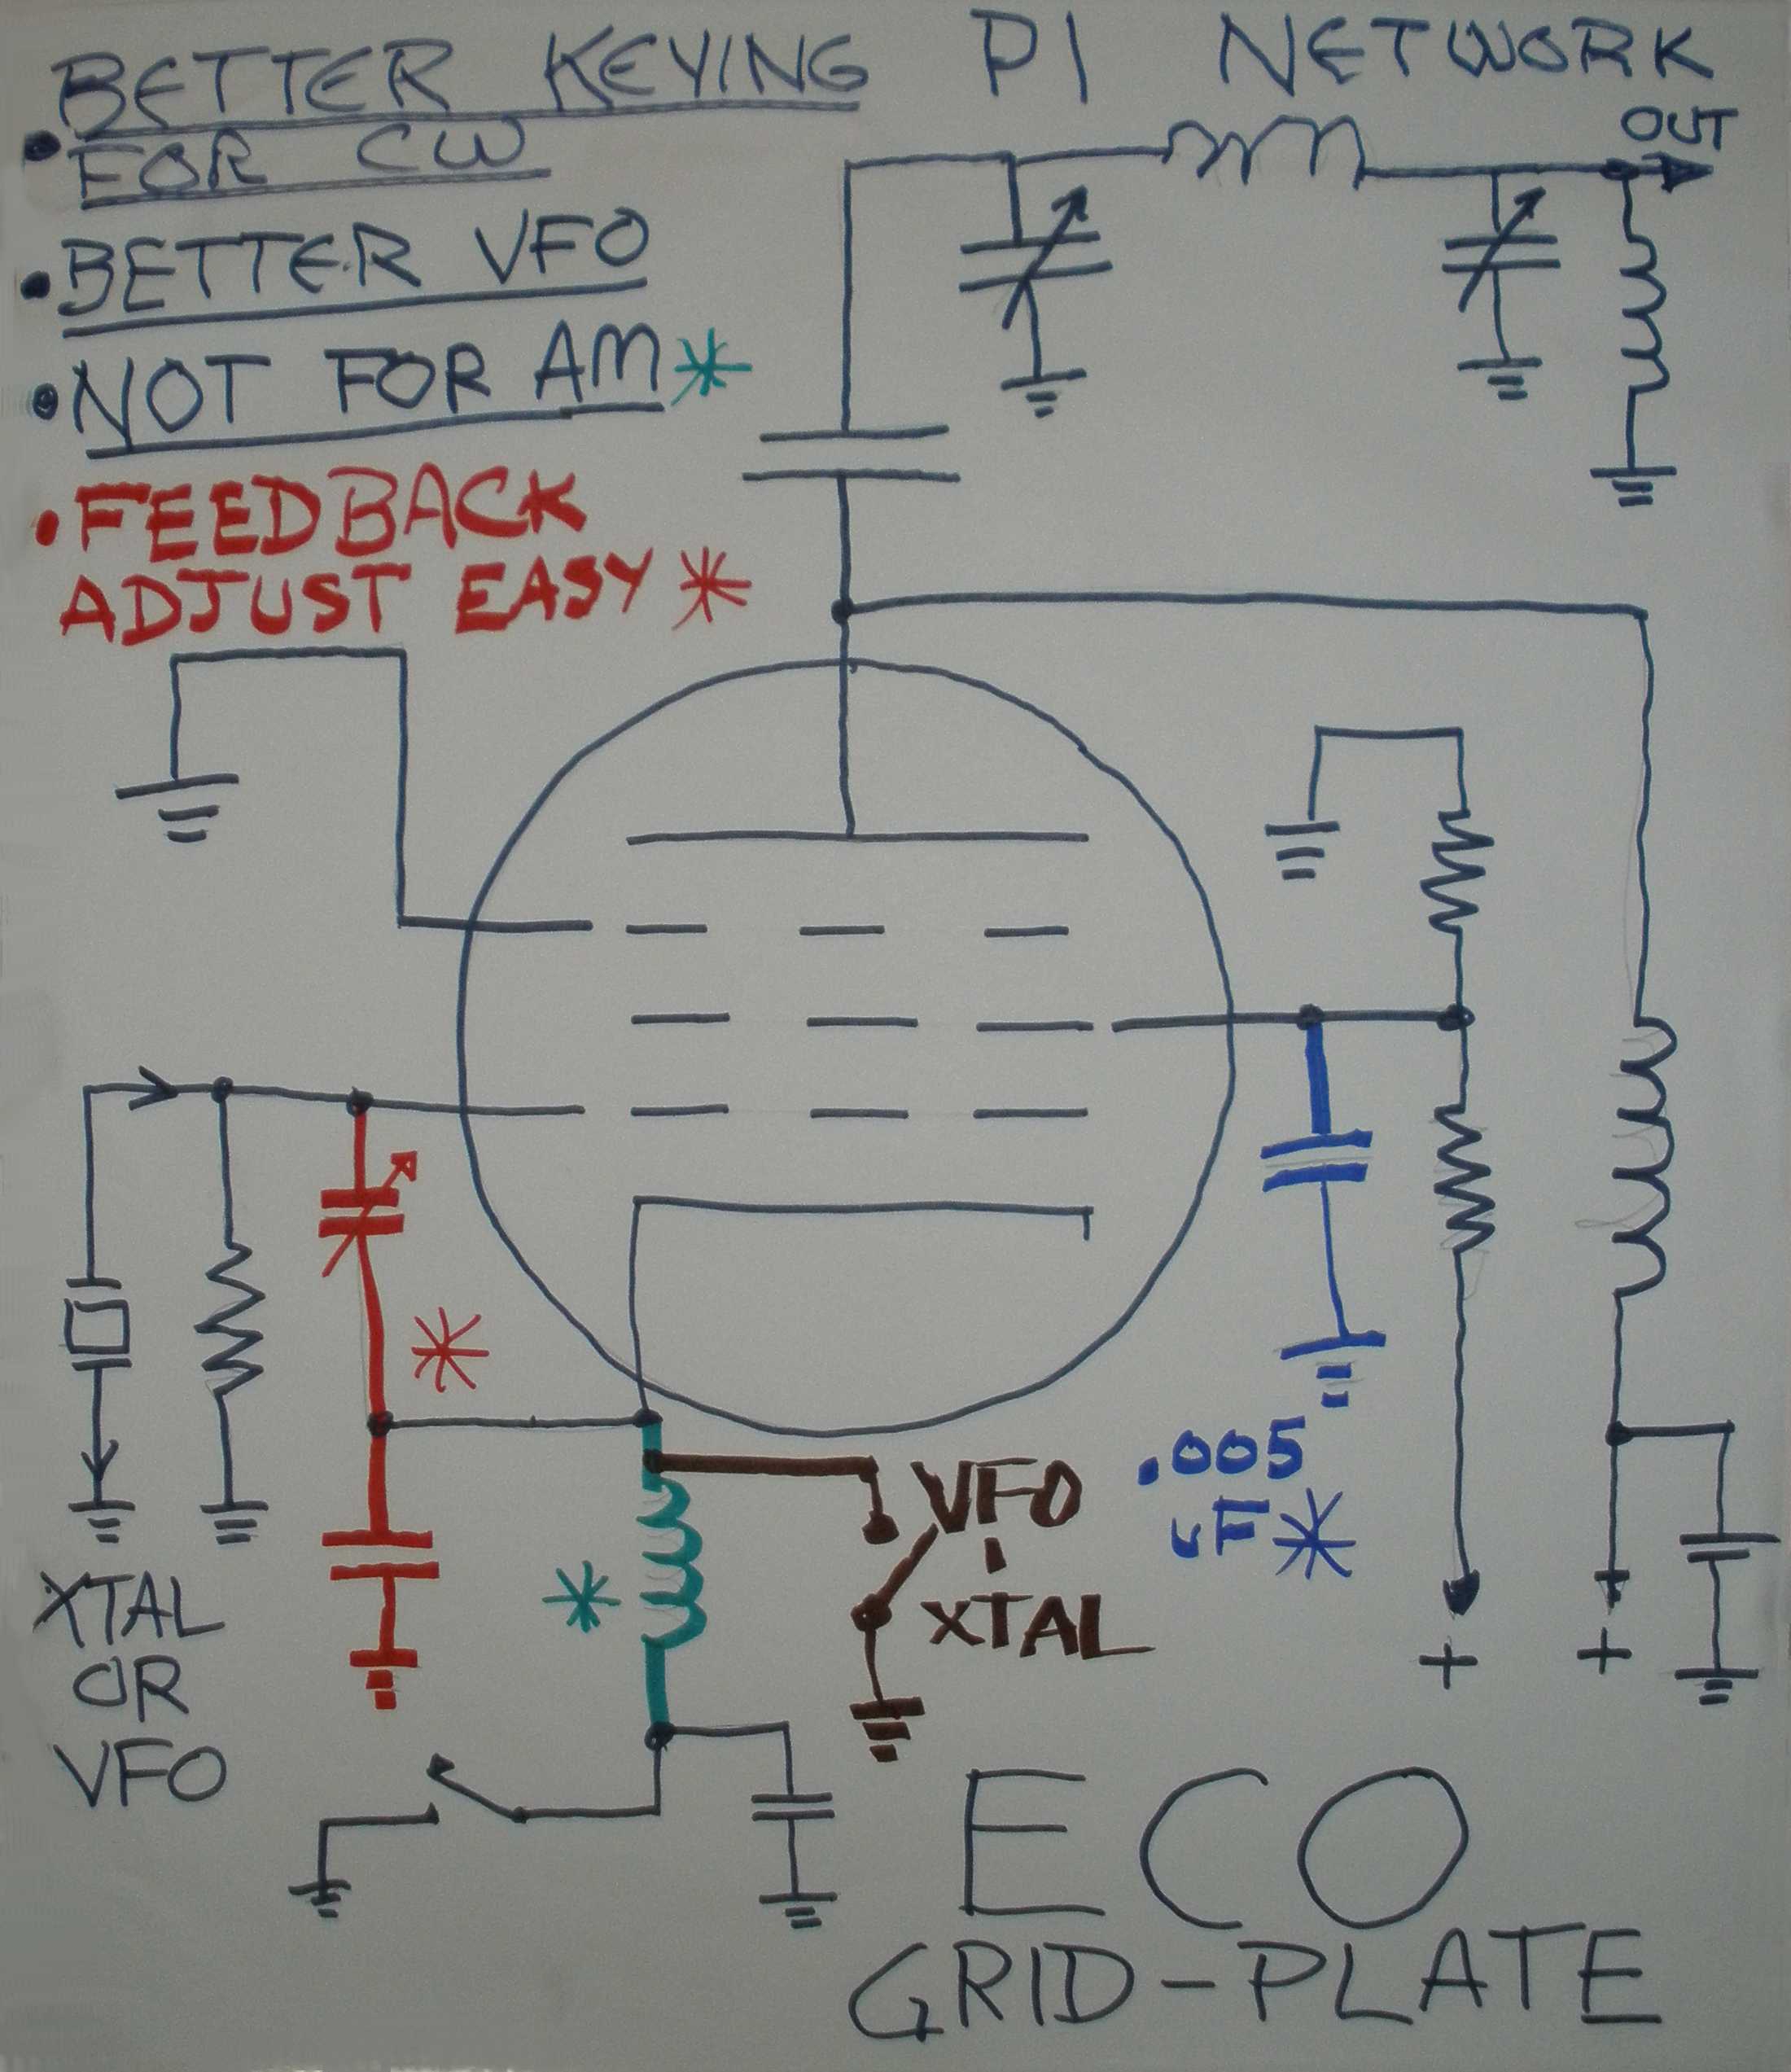 BETTER KEYING
FOR CW
PI NETWORK
OUT
• BETTER VFO
• NOT FOR AM *
• FEEDBACK
ADJUST EASY *
*
*
XTAL
OR
VFO
VFO
-
XTAL
.005
uF *
+
+
+
ECO
GRID-PLATE